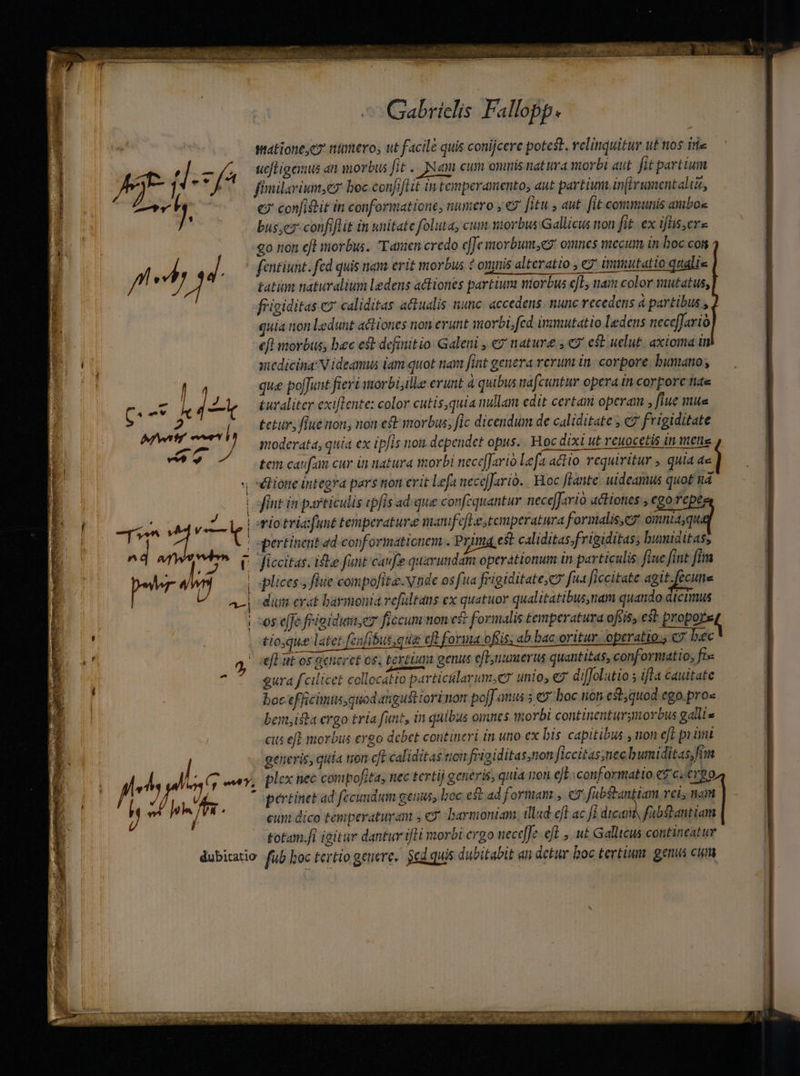 Gabrielis Fallopp.
matione,& numero, ut facilè quis conijcere potest. relinquitur ut nos in=
uestigemus an morbus sit. Nam cum omnis natura morbi aut sit partium
similarium,& hoc consistit in temperamento, aut partium instrumentaliũ,
& consistit in conformatione, numero, & situ, aut sit communis ambo=
bus,& consistit in unitate soluta, cum morbus Gallicus non sit ex istis,er=
go non est morbus. Tamen credo esse morbum,& omnes mecum in hoc con
sentiunt. sed quis nam erit morbus? omnis alteratio, & immutatio quali=
tatum naturalium ledens actiones partium morbus est, nam color mutatus,
frigiditas & caliditas actualis nunc accedens nunc recedens à partibus,
quia non ledunt actiones non erunt morbi,sed immutatio ledens necessariò
est morbus, hæc est definitio Galeni, & naturæ, & est uelut axioma in
medicina. Videamus iam quot nam sint genera rerum in corpore humano,
que possunt fieri morbi,illæ erunt à quibus nascuntur opera in corpore na=
turaliter existente: color cutis,quia nullam edit certam operam, siue mu=
tetur, siue non, non est morbus, sic dicendum de caliditate, & frigiditate
moderata, quia ex ipsis non dependet opus. Hoc dixi ut reuocetis in men=
tem causam cur in natura morbi necessariò lesa actio requiritur, quia a=
ctione integra pars non erit lesa necessariò. Hoc stante uideamus quot nã
sint in particulis ipsis ad que consequantur necessariò actiones, ego repe=
rio tria: sunt temperaturæ manifestæ,temperatura formalis,& omnia,quæ
pertinent ad conformationem. Prima est caliditas,frigiditas, humiditas,
siccitas. istæ sunt causæ quarundam operationum in particulis siue sint sim
plices, siue compositæ. Vnde os sua frigiditate,& sua siccitate agit. secun=
dum erat harmonia resultans ex quatuor qualitatibus,nam quando dicimus
os esse frigidum,& siccum non est formalis temperatura ossis, est propor=
tio,que latet sensibus,quæ est forma ossis, ab hac oritur operatio, & hæc
est ut os generet os. tertium genus est,numerus quantitas, conformatio, fi=
gura scilicet collocatio particularum,& unio, & dissolutio, ista cauitate
hoc efficimus,quod angustiori non possumus, & hoc non est,quod ego pro=
bem,ista ergo tria sunt, in quibus omnes morbi continentur,morbus galli=
cus est morbus ergo debet contineri in uno ex his capitibus, non est primi
generis, quia non est caliditas non frigiditas,non siccitas,nec humiditas,sim
plex nec composita, nec tertij generis, quia non est conformatio &c. ergo
pertinet ad secundum genus, hoc est ad formam, & substantiam rei, nam
cum dico temperaturam, & harmoniam, illud est ac si dicam, substantiam
totam. si igitur dantur isti morbi ergo necesse est, ut Gallicus contineatur
dubitatio sub hoc tertio genere. Sed quis dubitabit an detur hoc tertium genus cum